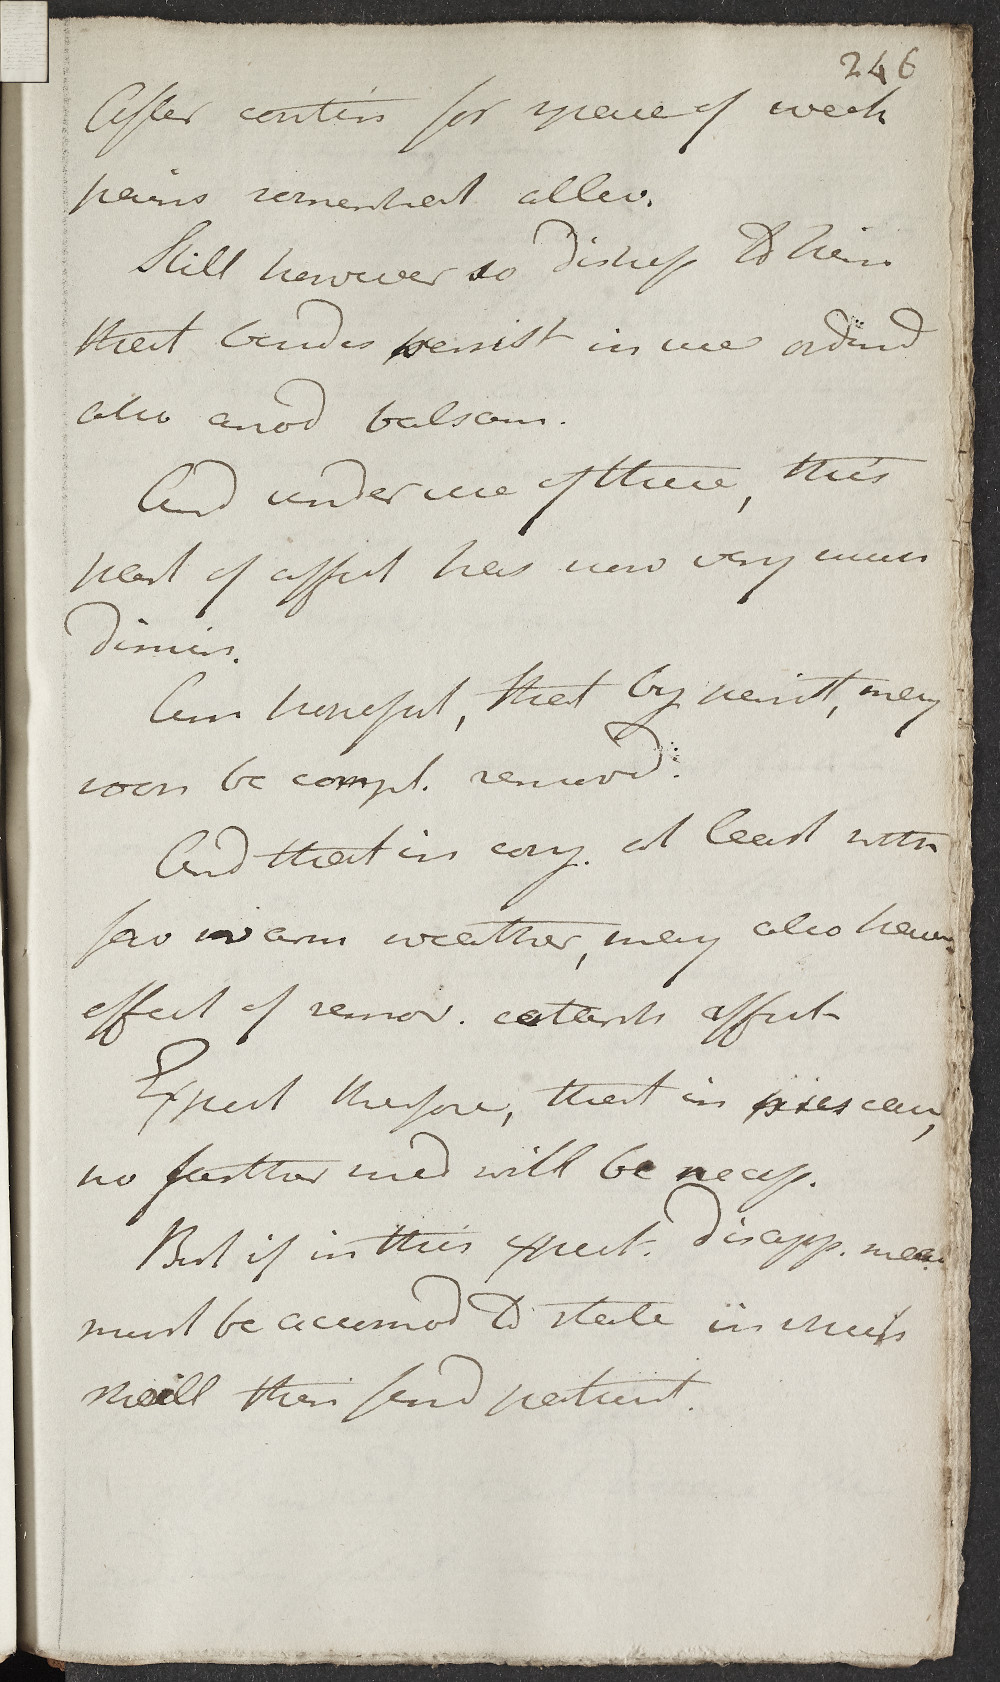 246
After contin for space of week
pains somewhat allev.
Still however so distress to him
that besides persist in use ord
also anod balsam.
And under use of these, this
part of affect has now very much
dimin.
Am hopeful, that by persist, may
soon be compl. remov'd.
And that in conj. at least with
fav warm weather, may also have
effect of remov. catarrh affect
Expect therefore, that in his case,
no further med will be necess.
But if in this expect. disapp.
must be accomod to state in which
shall then find patient.